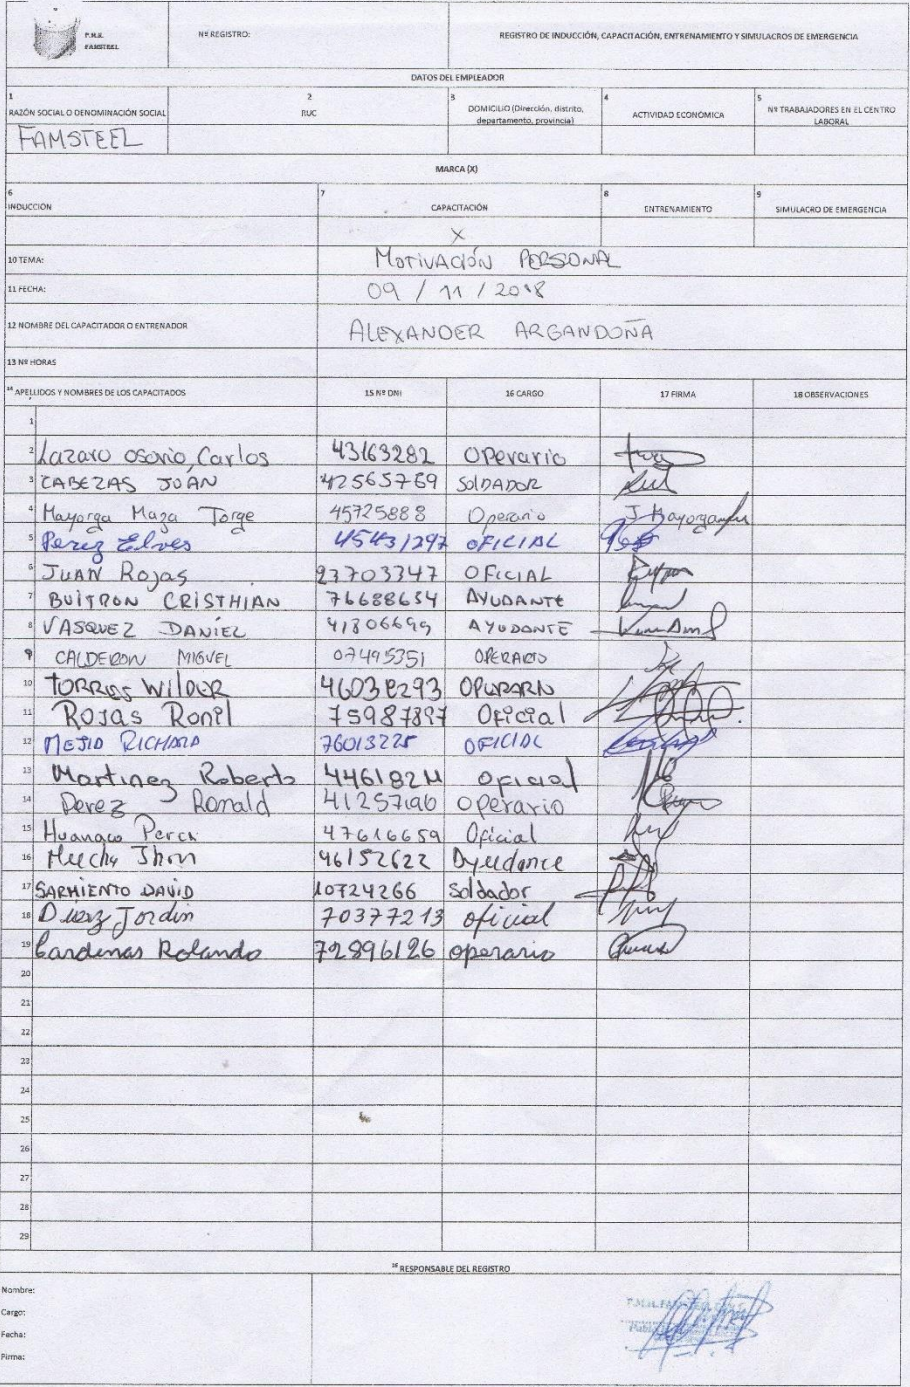 F.M.H.
FAMSTEEL
Nº REGISTRO:
REGISTRO DE INDUCCIÓN, CAPACITACIÓN, ENTRENAMIENTO Y SIMULACROS DE EMERGENCIA
DATOS DEL EMPLEADOR
1 RAZÓN SOCIAL O DENOMINACIÓN SOCIAL
2 RUC
3 DOMICILIO (Dirección, distrito, departamento, provincia)
4 ACTIVIDAD ECONÓMICA
5 Nº TRABAJADORES EN EL CENTRO LABORAL
FAMSTEEL
MARCA (X)
6 INDUCCIÓN
7 CAPACITACIÓN
8 ENTRENAMIENTO
9 SIMULACRO DE EMERGENCIA
X
10 TEMA: MOTIVACIÓN PERSONAL
11 FECHA: 09 / 11 / 2018
12 NOMBRE DEL CAPACITADOR O ENTRENADOR ALEXANDER ARGANDOÑA
13 Nº HORAS
14 APELLIDOS Y NOMBRES DE LOS CAPACITADOS 15 Nº DNI 16 CARGO 17 FIRMA 18 OBSERVACIONES
1
2 Lazaro Osorio, Carlos 43163282 Operario
3 CABEZAS JOAN 42565769 SOLDADOR
4 Mayorga Maza Jorge 45725888 Operario J Mayorga
5 Perez Elves 45431297 OFICIAL
6 JUAN Rojas 23703347 OFICIAL
7 BUITRON CRISTHIAN 76688634 AYUDANTE
8 VASQUEZ DANIEL 41806699 AYUDANTE
9 CALDERON MIGUEL 07495351 OPERARIO
10 TORRES WILDER 46038293
11 ROJAS Ronil 75987897 Oficial
12 MEJIA RICHARD 76013225 OFICIAL
13 Martinez Roberto Oficial
14 Perez Ronald 41257196 operario
15 Huanaco Percy 47616659 Oficial
16 Jhon 46152622
17 SARMIENTO DAVID 10724266 Soldador
18 Diaz Jordin 70377213 oficial
19 Cardenas Rolando 72896126 operario
20
21
22
23
24
25
26
27
28
29
RESPONSABLE DEL REGISTRO
Nombre:
Cargo:
Fecha:
Firma: